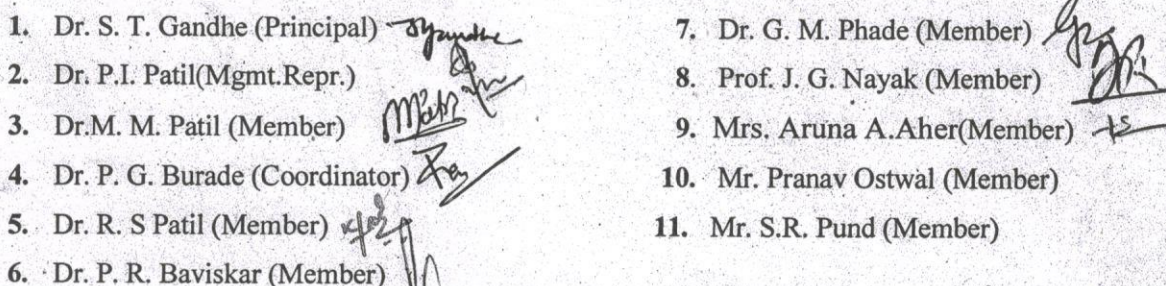 1. Dr. S. T. Gandhe (Principal)
2. Dr. P.I. Patil(Mgmt.Repr.)
3. Dr.M. M. Patil (Member)
4. Dr. P. G. Burade (Coordinator)
5. Dr. R. S Patil (Member)
6. Dr. P. R. Baviskar (Member)
7. Dr. G. M. Phade (Member)
8. Prof. J. G. Nayak (Member)
9. Mrs. Aruna A.Aher(Member)
10. Mr. Pranav Ostwal (Member)
11. Mr. S.R. Pund (Member)